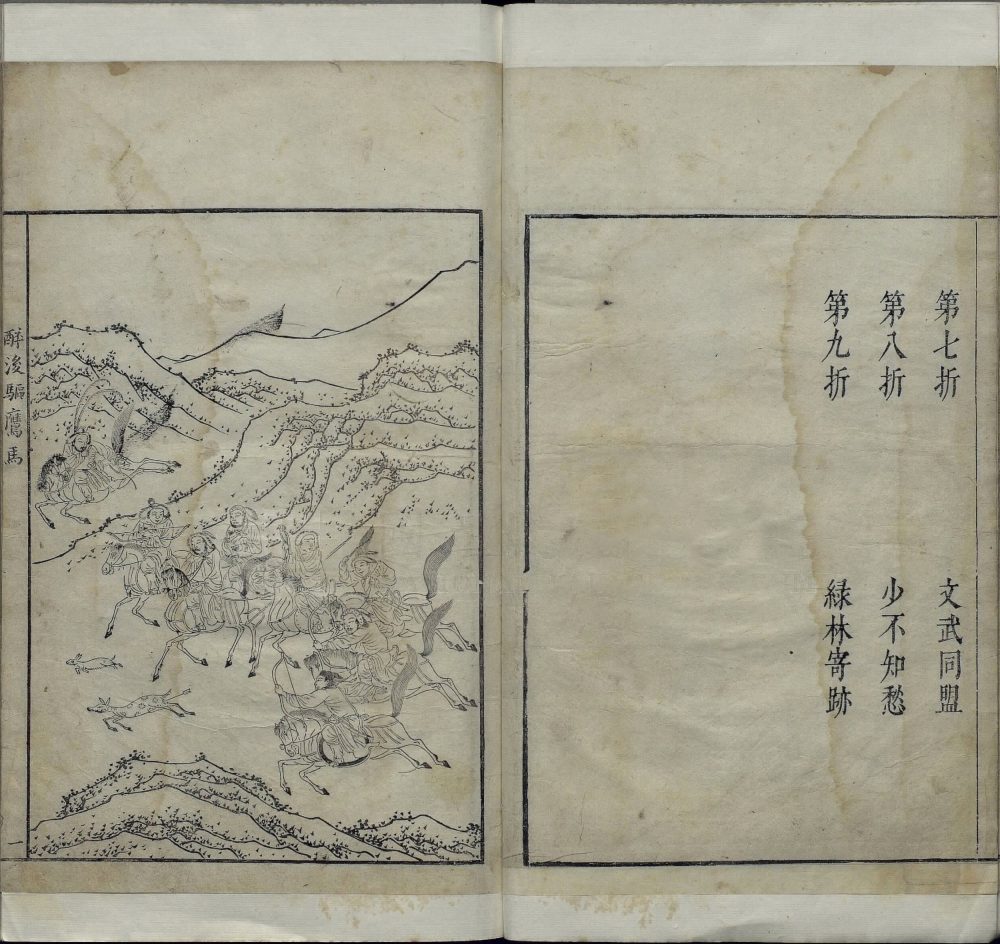 第七折 文武同盟
第八折 少不知愁
第九折 緑林寄跡
醉後驅鷹馬
一